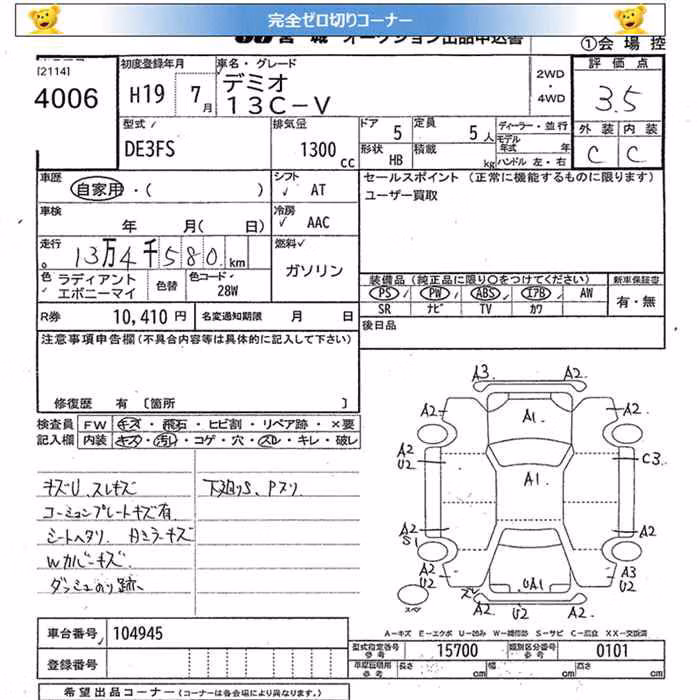 完全ゼロ切りコーナー
宮城 オークション出品申込書
①会場控
[2114]
4006
初度登録年月
H19 7月
車名・グレード
デミオ
13C-V
2WD
・
4WD
評価点
3.5
外装 内装
C C
型式
DE3FS
排気量
1300cc
ドア 5
定員 5人
形状 HB
積載 kg
ディーラー・並行
モデル年式 年
ハンドル 左・右
車歴
自家用・( )
シフト
AT
セールスポイント (正常に機能するものに限ります)
ユーザー買取
車検
年 月( 日)
冷房
AAC
走行
13万4千580 km
燃料
ガソリン
色
ラディアント
エボニーマイ
色替
色コード
28W
装備品(純正品に限り○をつけてください)
新車保証書
PS PW ABS エアB AW
有・無
SR ナビ TV カワ
R券 10,410円
名変通知期限 月 日
後日品
注意事項申告欄(不具合内容等は具体的に記入して下さい)
修復歴 有 〔箇所 〕
検査員記入欄
FW キズ・飛石・ヒビ割・リペア跡・×要
内装 キズ・汚れ・コゲ・穴・スレ・キレ・破レ
キズU、スレキズ
下廻りS、Pスリ
コーションプレートキズ有
シートヘタリ
Aミラーキズ
Wカバーキズ
ダッシュのり跡
A3 A2
A2 A1 A2
A2 U2 C3
A1
A2 S1 A2
A2 U2 UA1 A3 U2
スレ A2 U2 A2
スペア
A-キズ E-エクボ U-凹み W-補修跡 S-サビ C-腐食 XX-交換済
車台番号 104945
型式指定番号 参考 15700
類別区分番号 参考 0101
登録番号
車庫証明用 参考 長さ cm 幅 cm 高さ cm
希望出品コーナー (コーナーは各会場により異なります。)